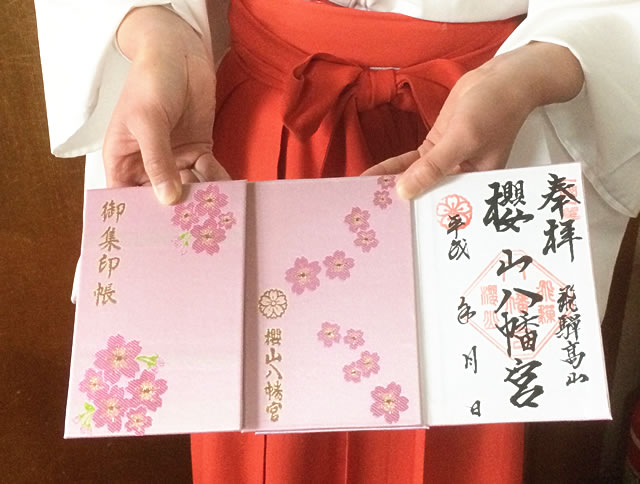 御集印帳
櫻山八幡宮
奉拝
飛騨高山
櫻山八幡宮
平成 年 月 日